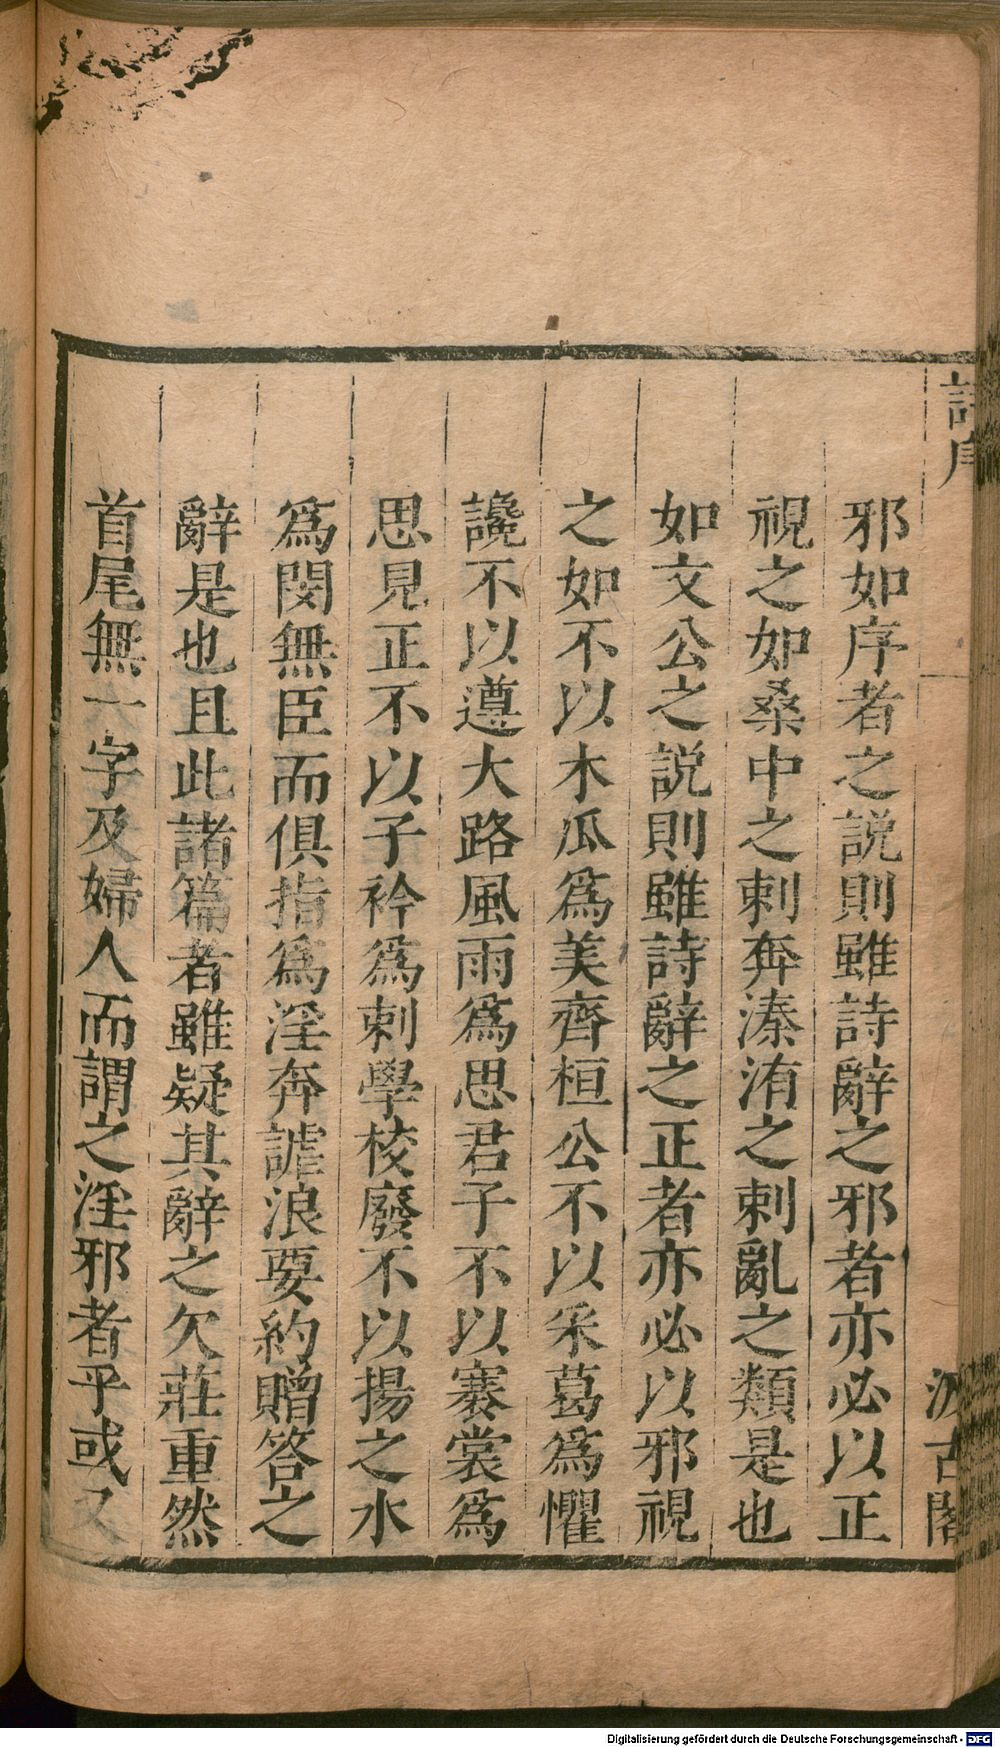 詩序
汲古閣
邪如序者之説則雖詩辭之邪者亦必以正
視之如桑中之刺奔溱洧之刺亂之類是也
如文公之説則雖詩辭之正者亦必以邪視
之如不以木瓜爲美齊桓公不以采葛爲懼
讒不以遵大路風雨爲思君子不以褰裳爲
思見正不以子衿爲刺學校廢不以揚之水
爲閔無臣而俱指爲淫奔謔浪要約贈答之
辭是也且此諸篇者雖疑其辭之欠莊重然
首尾無一字及婦人而謂之淫邪者乎或又
Digitalisierung gefördert durch die Deutsche Forschungsgemeinschaft - DFG